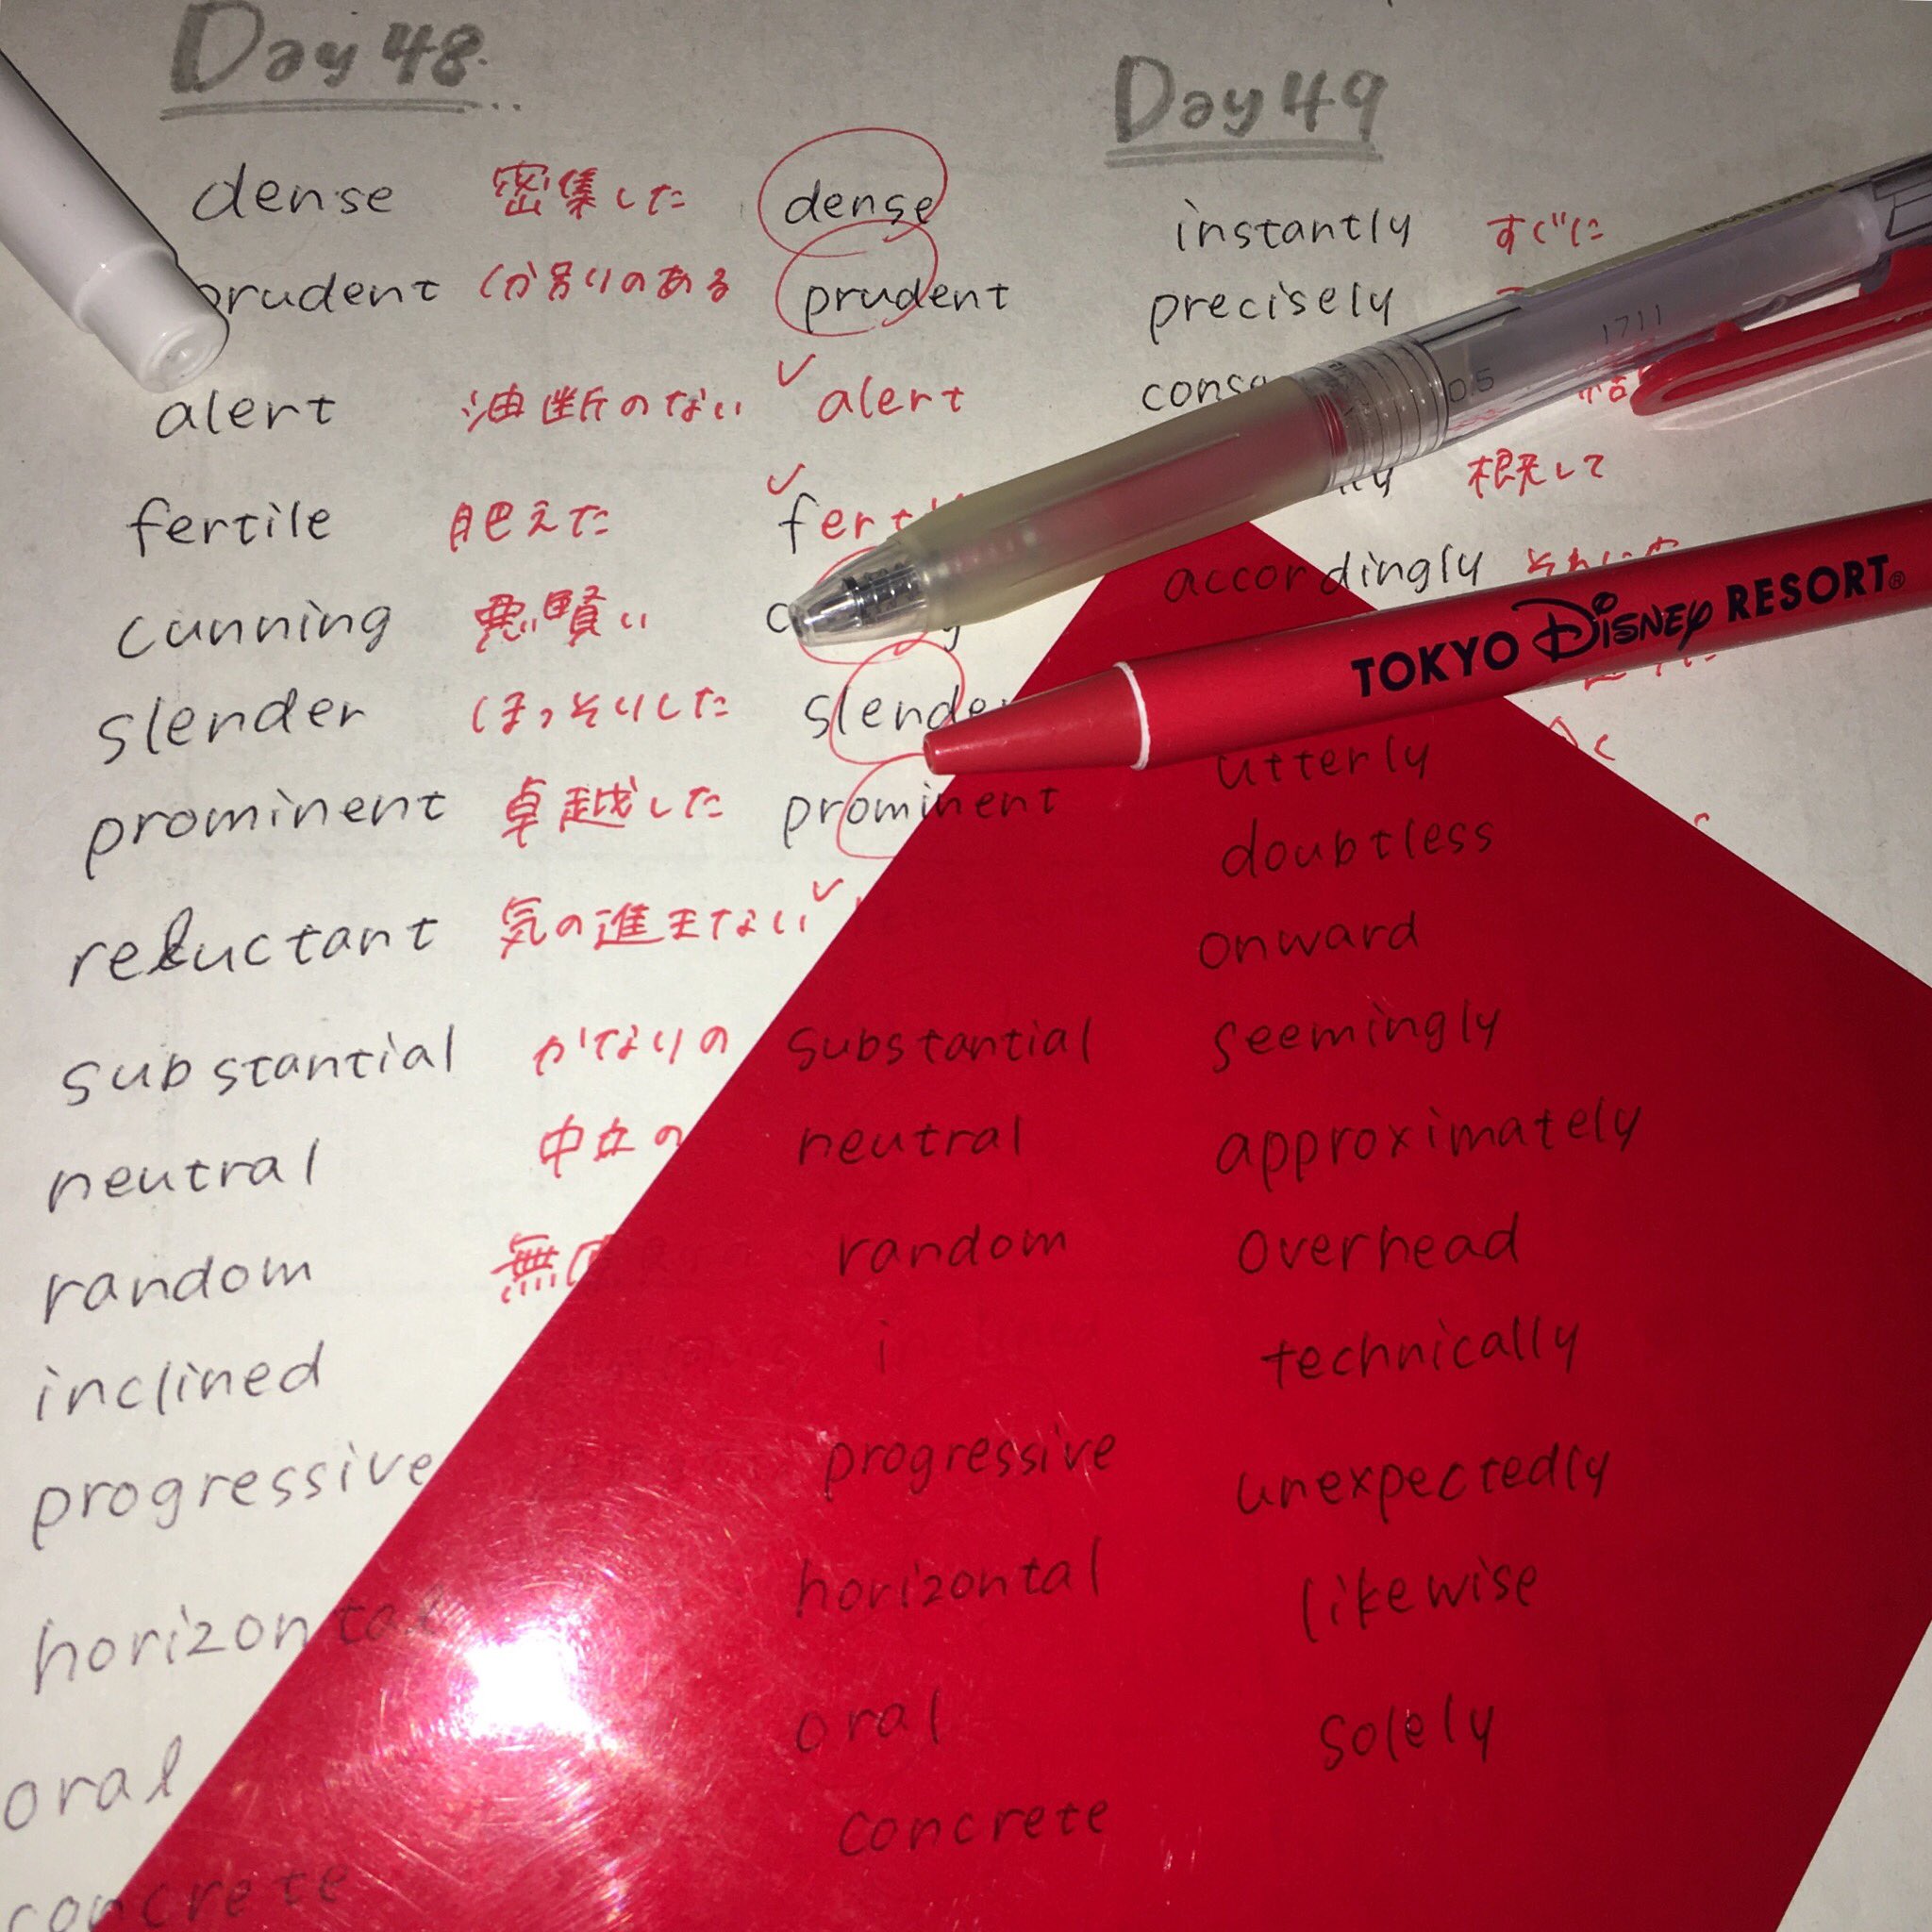 Day 48
dense 密集した dense
prudent 分別のある prudent
alert 油断のない alert
fertile 肥えた
cunning 悪賢い
slender ほっそりした slender
prominent 卓越した prominent
reluctant 気の進まない
substantial かなりの substantial
neutral 中立の neutral
random random
inclined inclined
progressive progressive
horizontal horizontal
oral oral
concrete concrete
Day 49
instantly すぐに
precisely
accordingly
utterly
doubtless
onward
seemingly
approximately
overhead
technically
unexpectedly
likewise
solely
0.5
1711
TOKYO DISNEY RESORT®